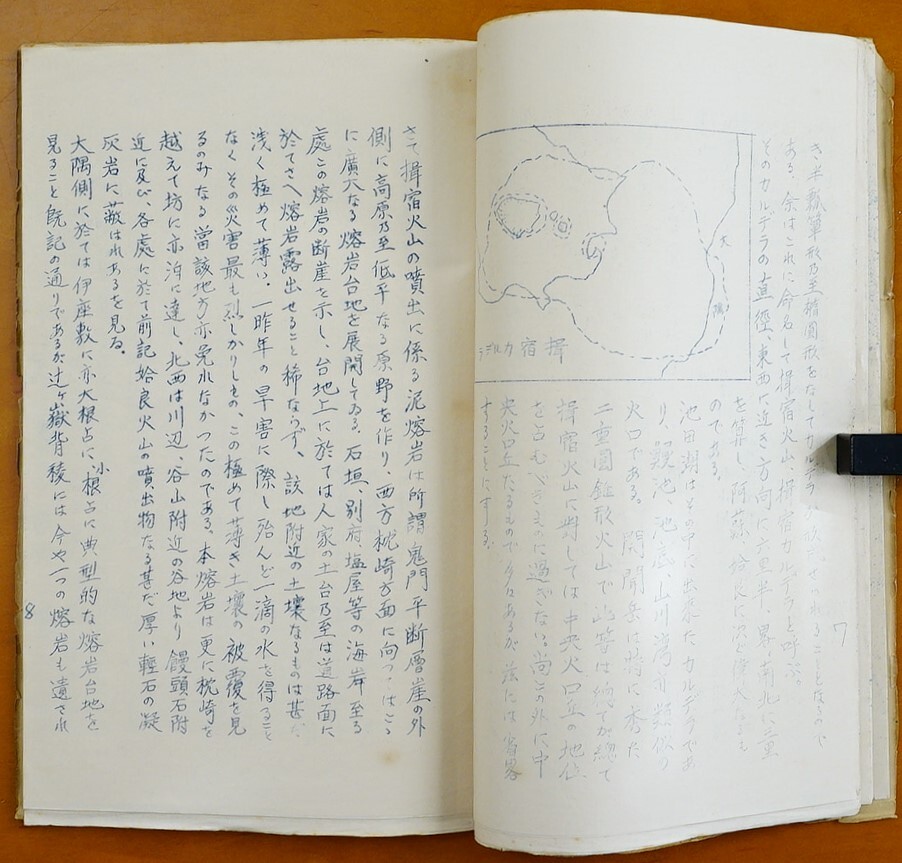 き半瓢箪形乃至楕圓形をなしてカルデラの
ある、余はこれに命名して揖宿火山、揖宿カルデラと呼ぶ。
そのカルデラの直徑、東西に近き方向に六里半、畧南北に五里
を算し、阿蘇、姶良に次ぐ偉大なるも
のである。
池田湖はその中に出来たカルデラであ
り、鰻池、池底、山川湾亦類似の
火口である。開聞岳は特に秀た
二重圓錐形火山で此等は総て
揖宿火山に對しては中央火口丘の地位
を占むべきものに過ぎない。尚この外に中
央火口丘たるもの多々あるが茲には省畧
することにする。
大
隅
揖宿カルデラ
7
さて揖宿火山の噴出に係る泥熔岩は所謂鬼門平断層崖の外
側に高原乃至低平なる原野を作り、西方枕崎方面に向つてはこゝ
に廣大なる熔岩台地を展開してゐる。石垣、別府塩屋等の海岸至る
處この熔岩の断崖を示し、台地上に於ては人家の土台乃至は道路面に
於てさへ熔岩露出せること稀ならず、該地附近の土壌なるものは甚だ
浅く極めて薄い。一昨年の旱害に際し殆んど一滴の水を得ること
なくその災害最も烈しかりしもの、この極めて薄き土壌の被覆を見
るのみなる當該地方亦免れなかつたのである。本熔岩は更に枕崎を
越えて坊に亦泊に達し、北西は川辺、谷山附近の谷地より饅頭石附
近に及び、各處に於て前記姶良火山の噴出物なる甚だ厚い輕石の凝
灰岩に蔽はれあるを見る。
大隅側に於ては伊座敷に亦大根占に小根占に典型的な熔岩台地を
見ること既記の通りであるが辻ヶ嶽背稜には今や一つの熔岩も遺され
8